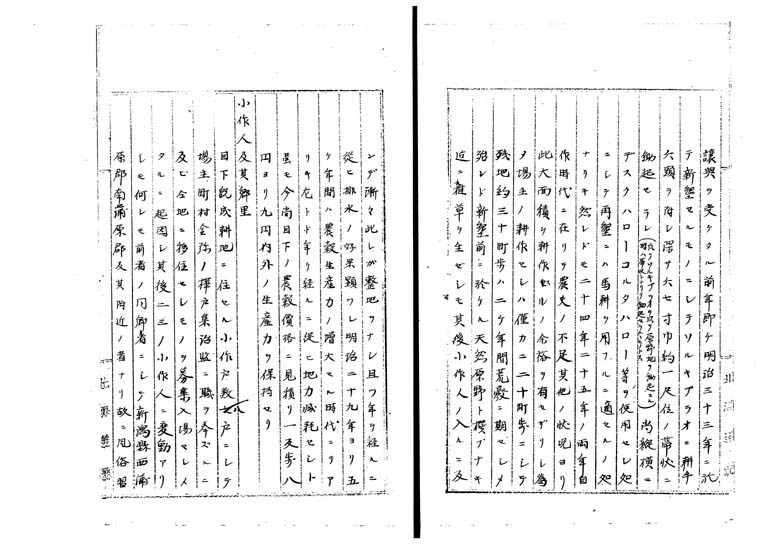 讓與ヲ受ケタル前年即ケ明治三十三年ニ於
テ新墾セルモノニシテソルキプラオニ耕牛
六頭ヲ附シ深サ六七寸巾約一尺位ノ帯状ニ
鋤起セラレ 尚縦横ニ
デスクハローコルタハロー等ヲ使用セレ処
ニシテ再墾ニハ馬耕ヲ用フルニ適セルノ処
ナリキ然レドモ二十四年二十五年ノ両年自
作時代ニ在リテ農夫ノ不足其他ノ状況ヨリ
此大面積ヲ耕作スルノ余裕ヲ有セザリシ為
メ場主ノ耕作セレハ僅カニ二十町歩ニシテ
残地約三十町歩ハ二ケ年間荒廢ニ期セレメ
殆レド新墾前ニ於ケル天然原野ト撰ブナキ
近ニ雑草ヲ生ゼレモ其後小作人ノ入ルニ及
ンデ漸々此レガ整地ヲナシ且ツ年ヲ経ルニ
從ヒ排水ノ好果顕ワレ明治二十九年ヨリ五
ケ年間ハ農穀生産力ノ増大セル時代ニテア
リキ左レド年ヲ経ルニ從ヒ地力減耗セレト
虽モ今尚目下ノ農穀價格ニ見積リ一反歩八
円ヨリ九円内外ノ生産力ヲ保持セリ
小作人及其郷里
目下既成耕地ニ住セル小作戸数 八戸ニシテ
場主町村会弥ノ樺戸集治監ニ職ヲ奉ズルニ
及ビ全地ニ移住セレモノヲ募集入場セレメ
タルニ起因シ其後二三ノ小作人ニ変動アリ
レモ何レモ前者ノ同郷者ニシテ新潟縣西蒲
原郡南蒲原郡及其附近ノ者ナリ故ニ風俗習